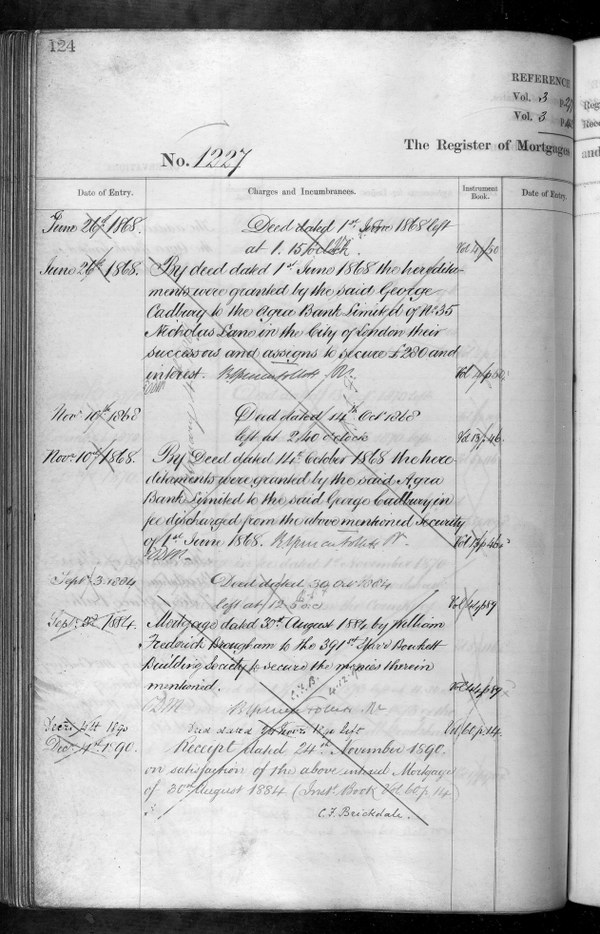 124
REFERENCE
Vol. 3 p.
Vol. 3 p.
The Register of Mortgages
No. 1227
Date of Entry. Charges and Incumbrances. Instrument Book. Date of Entry.
June 26th 1868. Deed dated 1st June 1868 left
at 1.15 o'clock. Vol
June 26th 1868. By deed dated 1st June 1868 the heredita-
ments were granted by the said George
Cadbury to the Agra Bank Limited of No. 35
Nicholas Lane in the City of London their
successors and assigns to secure £280 and
interest. Vol
Novr 10th 1868 Deed dated 14th Octr 1868
left at 2.40 o'clock Vol 13 p 46.
Novr 10th 1868. By Deed dated 14th October 1868 the here-
ditaments were granted by the said Agra
Bank Limited to the said George Cadbury in
fee discharged from the above mentioned Security
of 1st June 1868. Vol 13 p 46
Septr 3 1884 Deed dated 30 1884
left at 12.5 Vol 44 p 89
Sepr 3rd 1884. Mortgage dated 30th August 1884 by William
Frederick Brougham to the 391st Starr Bowkett
Building Society to secure the monies therein
mentioned. Vol 44 p 89
C.F.B.
4.12.90
Decr 4th 1890 Deed dated 24 Novr 1890 left Vol 60 p. 14
Decr 4th 1890. Receipt dated 24th November 1890.
on satisfaction of the above entered Mortgage
of 30th August 1884 (Inst. Book Vol 60 p 14)
C.F. Brickdale.